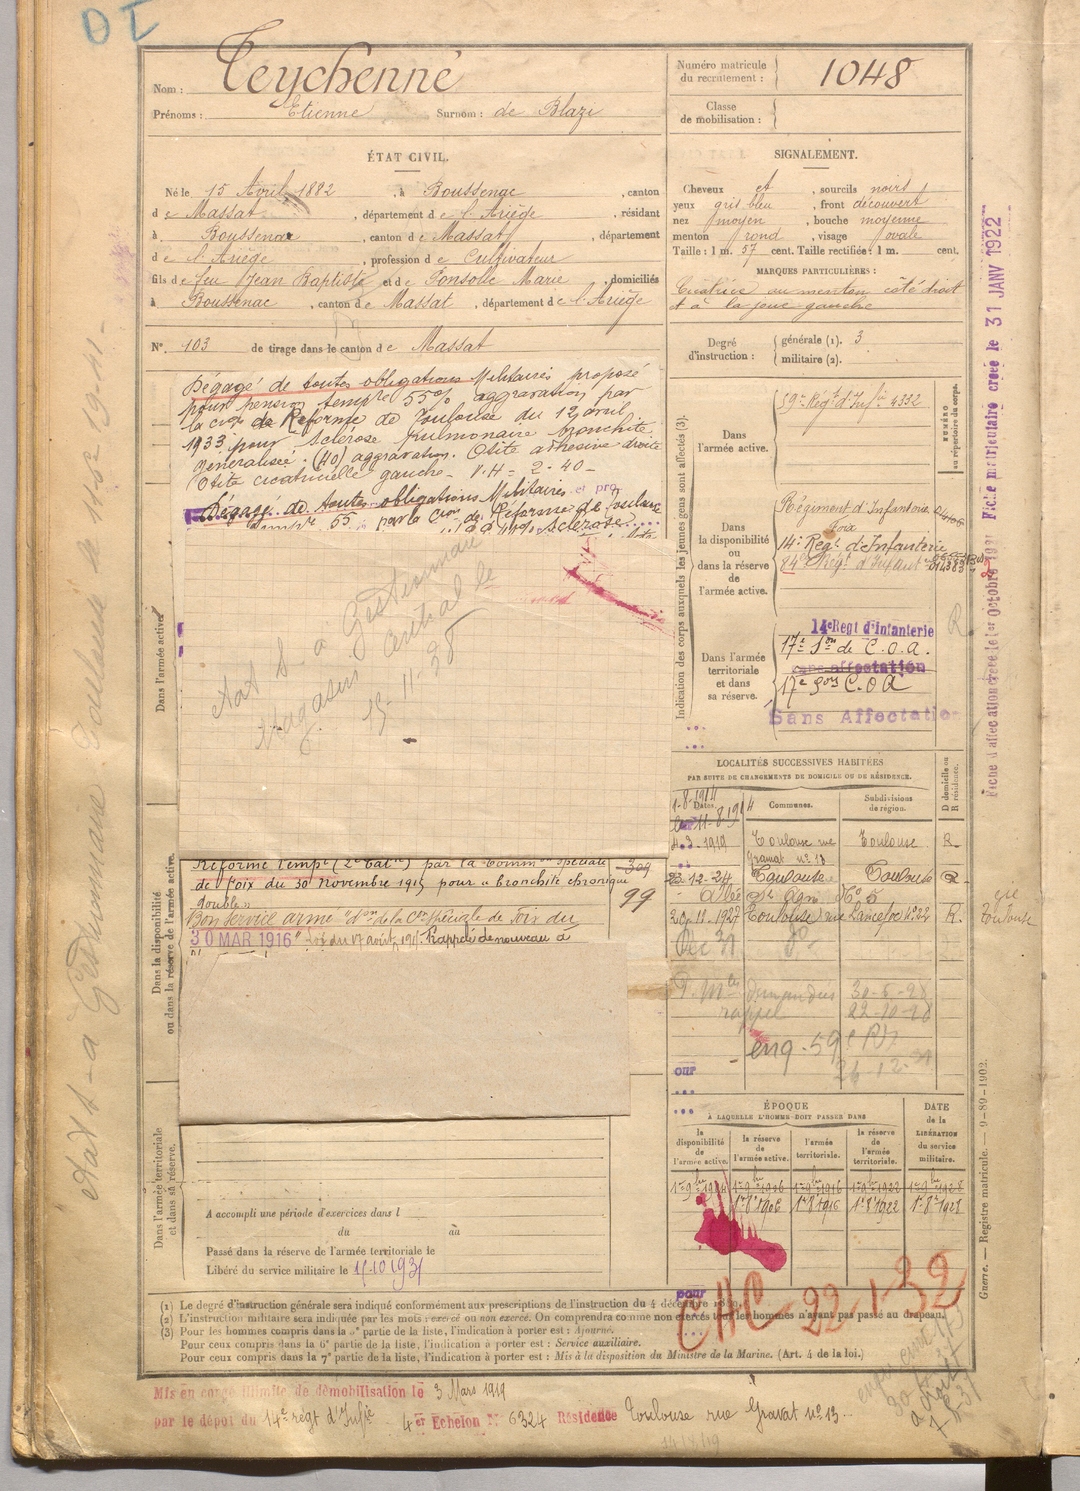 D I
Nom : Teychenné
Prénoms : Etienne Surnom : de Blazi
Numéro matricule du recrutement : 1048
Classe de mobilisation :
ÉTAT CIVIL.
Né le 15 Avril 1882, à Boussenac, canton
de Massat, département de l'Ariège, résidant
à Boussenac, canton de Massat, département
de l'Ariège, profession de Cultivateur
fils de feu Jean Baptiste et de Fonsolle Marie, domiciliés
à Boussenac, canton de Massat, département de l'Ariège
N° 103 de tirage dans le canton de Massat
SIGNALEMENT.
Cheveux et, sourcils noirs
yeux gris bleu, front découvert
nez moyen, bouche moyenne
menton rond, visage ovale
Taille : 1 m. 57 cent. Taille rectifiée : 1 m. cent.
MARQUES PARTICULIÈRES :
Cicatrice au menton côté droit
et à la joue gauche
Degré d'instruction : générale (1). 3
militaire (2).
Dégagé de toutes obligations Militaires proposé
pour pension tempre 55% aggravation par
la Cion de Réforme de Toulouse du 12 avril
1933 pour Sclérose Pulmonaire bronchite
généralisée. (40) aggravation. Otite adhésive droite
Otite cicatricielle gauche - V.H = 2-40 -
Dégagé de toutes obligations Militaires et pro
tempre 55 par la Cion de Réforme de Toulouse
Sclérose
Aat S à Gestionnaire
Magasin Central le
15-11-38
Réforme Tempre (2e Catie) par la Commion spéciale
de Foix du 30 Novembre 1915 pour "bronchite chronique
double"
309
99
Bon service armé "don de la Cn spéciale de Foix du
30 MAR 1916" Loi du 17 août 1915 Rappelé de nouveau à
Dans l'armée active
Dans la disponibilité
ou dans la réserve de l'armée active.
Dans l'armée territoriale
et dans sa réserve.
A accompli une période d'exercices dans l
du au
Passé dans la réserve de l'armée territoriale le
Libéré du service militaire le 15/10/1931
Indication des corps auxquels les jeunes gens sont affectés (3).
NUMÉRO
au répertoire du corps.
Dans l'armée active.
59e Régt d'Infie 4332
Dans la disponibilité ou dans la réserve de l'armée active.
Régiment d'Infanterie
Foix
14e Régt d'Infanterie
84e Régt d'Infant
Dans l'armée territoriale et dans sa réserve.
14e Regt d'Infanterie
17e Son de C.O.A.
Sans affectation
17e Son C.O.A
Sans Affectation
R
LOCALITÉS SUCCESSIVES HABITÉES
PAR SUITE DE CHANGEMENTS DE DOMICILE OU DE RÉSIDENCE.
Dates. Communes. Subdivisions de région. D domicile ou R résidence.
1-8-1914
11-8-1914
4-3-1919 Toulouse rue Gravat n° 13 Toulouse R.
23-12-24 Toulouse Toulouse R
Allée St Agne N° 5
20-11-1927 Toulouse rue Lancefoc N° 22 R.
Dec 31 do
P. Mle demandés 30-5-28
rappel 22-10-28
enq. 59e RI
26-12-31
our
ÉPOQUE
À LAQUELLE L'HOMME DOIT PASSER DANS
la disponibilité de l'armée active. la réserve de l'armée active. l'armée territoriale. la réserve de l'armée territoriale.
DATE de la LIBÉRATION du service militaire.
1er 9bre 1904 1er 9bre 1906 1er 9bre 1916 1er 9bre 1922 1er 9bre 1928
1er 8bre 1906 1er 8bre 1916 1er 8bre 1922 1er 8bre 1928
pour
CHC - 22-1-32
(1) Le degré d'instruction générale sera indiqué conformément aux prescriptions de l'instruction du 4 décembre 1889.
(2) L'instruction militaire sera indiquée par les mots : exercé ou non exercé. On comprendra comme non exercés tous les hommes n'ayant pas passé au drapeau.
(3) Pour les hommes compris dans la 5e partie de la liste, l'indication à porter est : Ajourné.
Pour ceux compris dans la 6e partie de la liste, l'indication à porter est : Service auxiliaire.
Pour ceux compris dans la 7e partie de la liste, l'indication à porter est : Mis à la disposition du Ministre de la Marine. (Art. 4 de la loi.)
Mis en congé illimité de démobilisation le 3 Mars 1919
par le dépôt du 14e régt d'Infie 4er Echelon N° 6324 Résidence Toulouse rue Gravat n° 13
14/8/19
Guerre. — Registre matricule. — 9-89-1902.
Fiche d'affectation créée le 1er octobre 1921 Fiche matriculaire créée le 31 JANV 1922
Toulouse
Aat S - à Gestionnaire Toulouse le 11-3-1941-